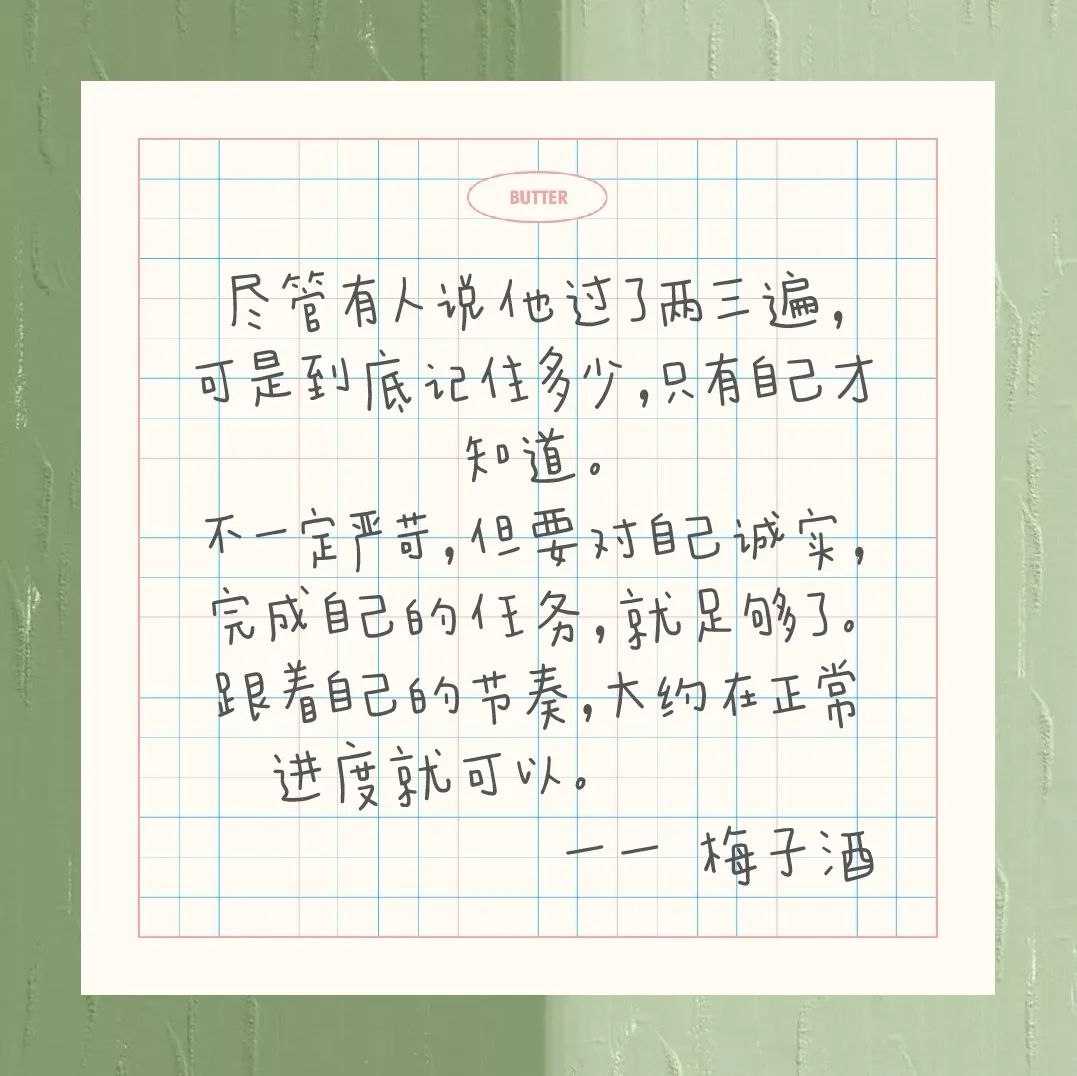 BUTTER
尽管有人说他过了两三遍，
可是到底记住多少，只有自己才
知道。
不一定严苛，但要对自己诚实，
完成自己的任务，就足够了。
跟着自己的节奏，大约在正常
进度就可以。
一一 梅子酒